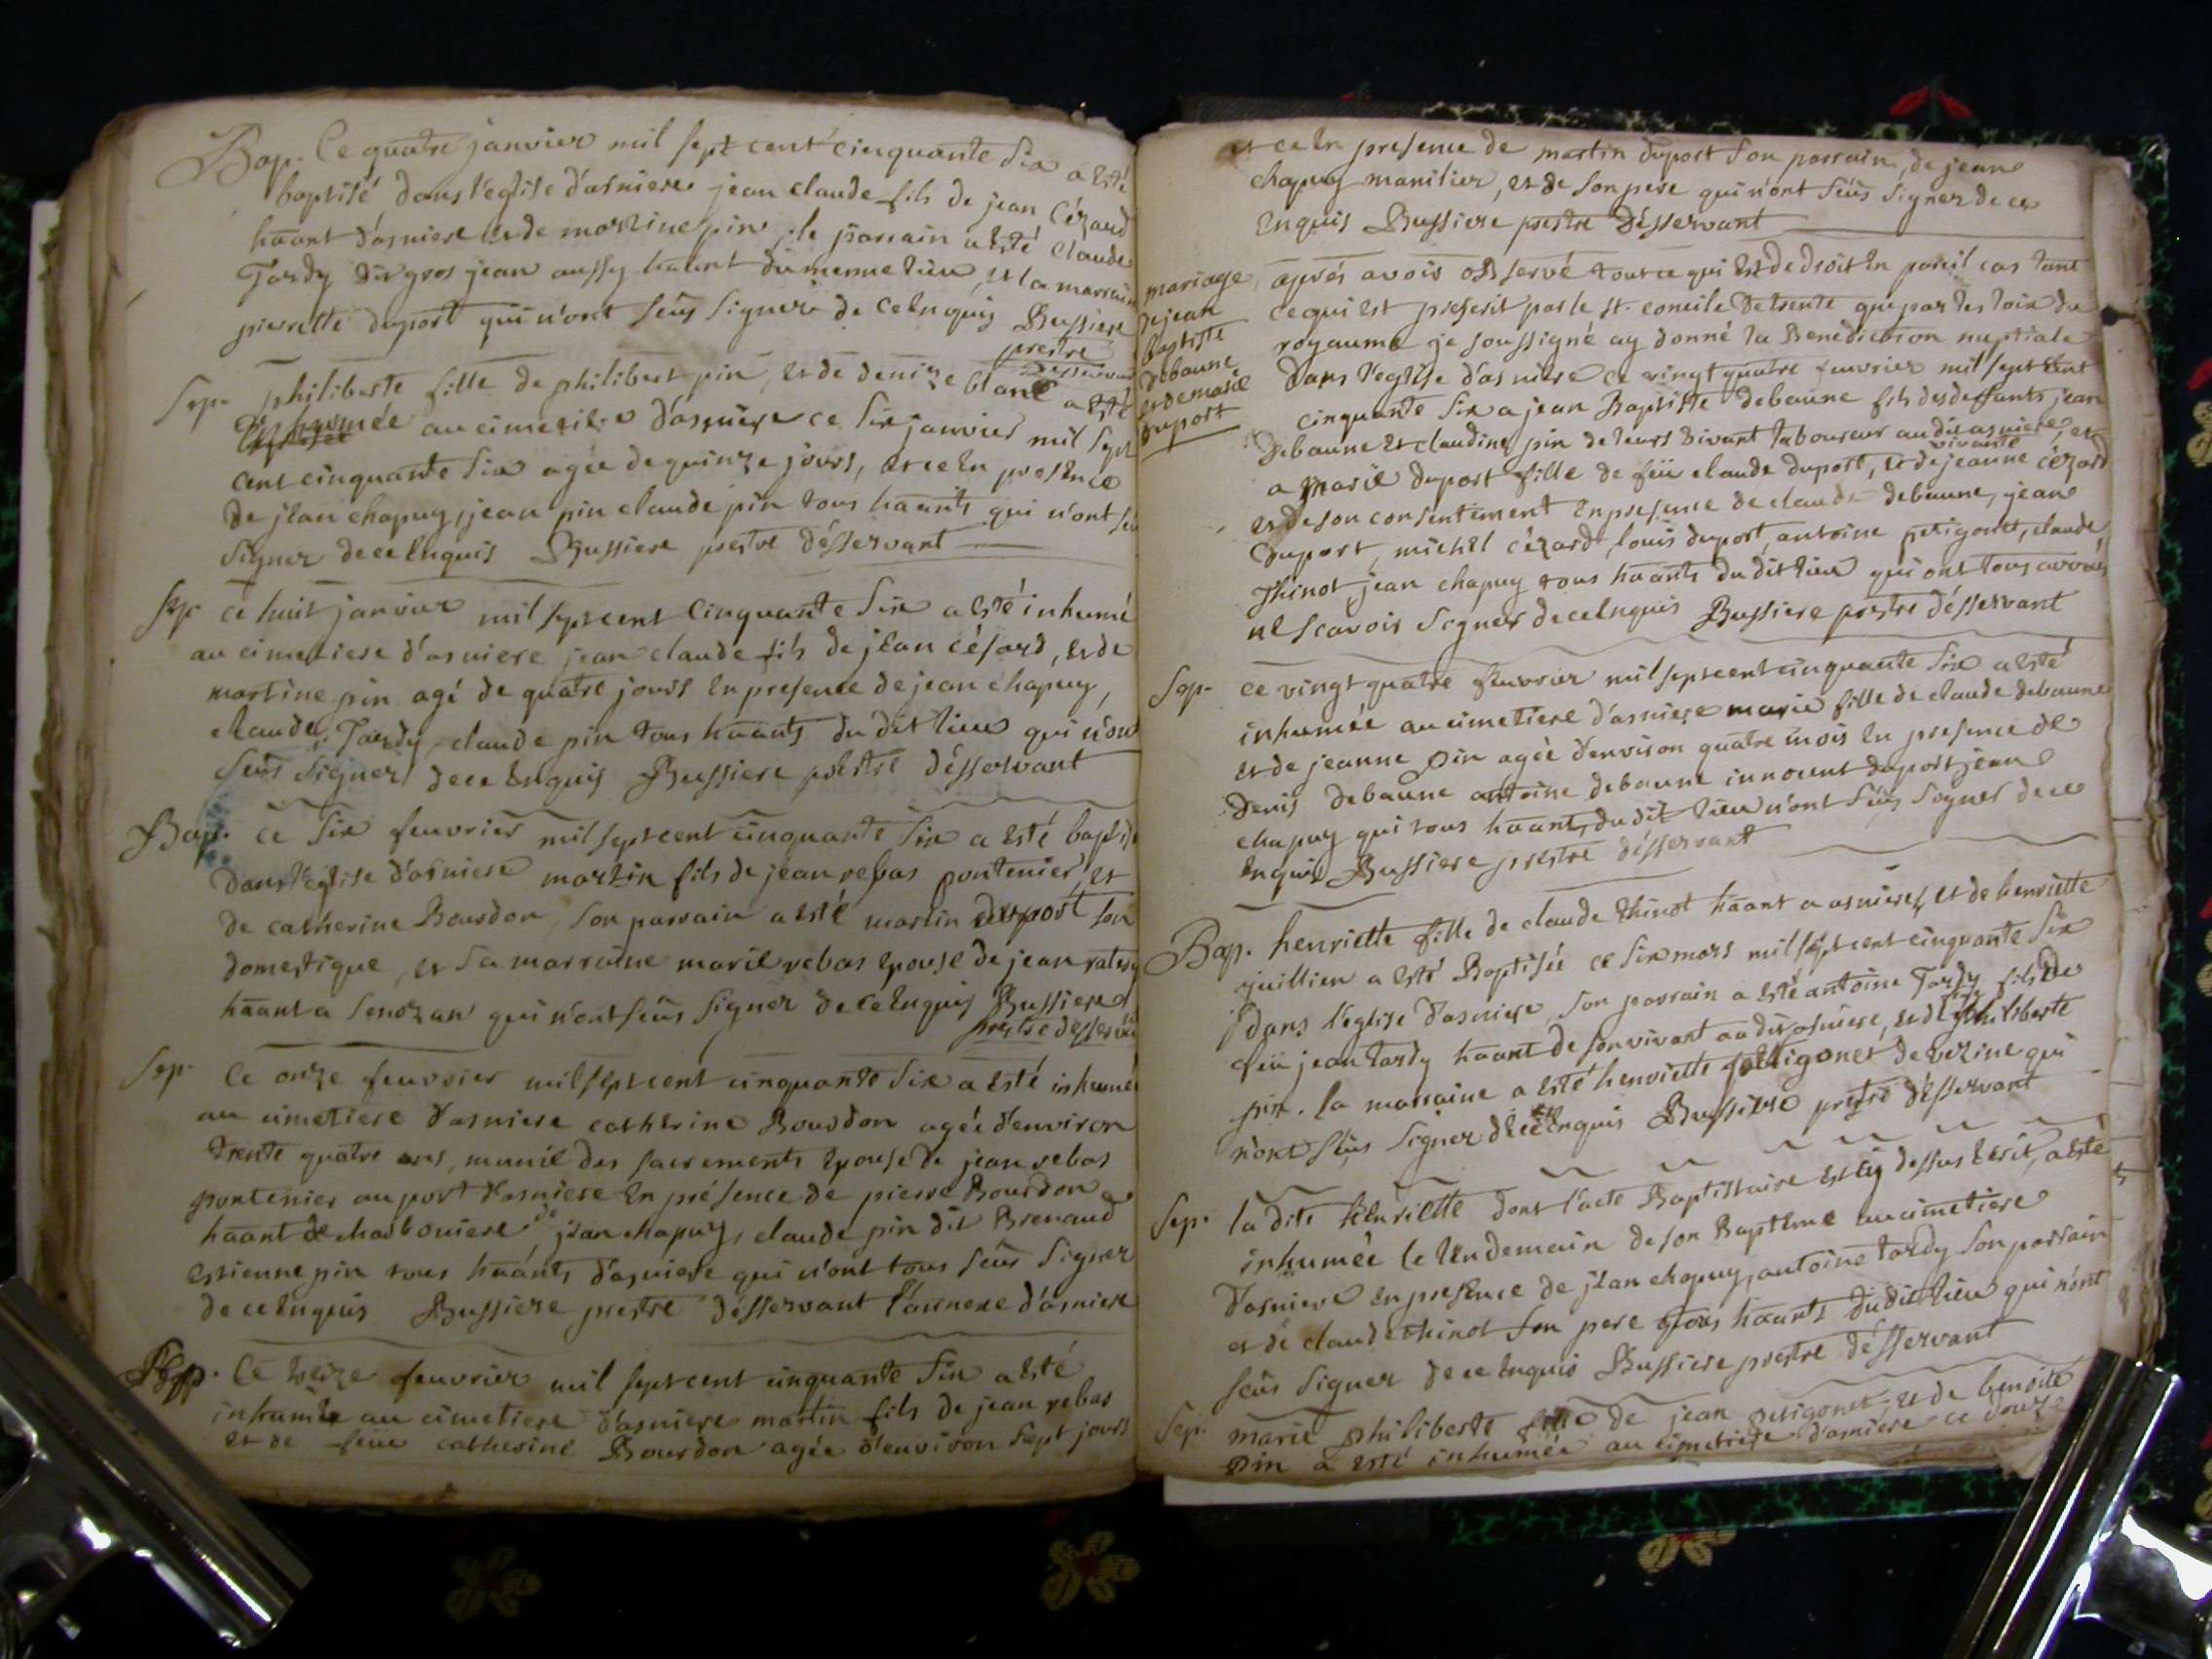 Bap. Ce quatre janvier mil sept cent cinquante six a esté
baptisé dans l'eglise d'asniere jean claude fils de jean Cézard
haant d'asniere et de martine pin, le parrain a esté claude
Tardy dit gros jean aussy haant du meme lieu, et la marraine
pierrette duport qui n'ont seus signer de ce enquis Bussiere
prestre desservant
Sep. philiberte fille de philibert pin, et de denize blanc a esté
inhumée au cimetiere d'asniere ce six janvier mil sept
cent cinquante six agée de quinze jours, et ce en presence
de jean chapuy, jean pin claude pin tous haants qui n'ont seu
signer de ce enquis Bussiere prestre désservant
Sep. ce huit janvier mil sept cent cinquante six a esté inhumé
au cimetiere d'asniere jean claude fils de jean césard, et de
martine pin agé de quatre jours en presence de jean chapuy,
claude Tardy, claude pin tous haants du dit lieu qui n'ont
seus signer de ce enquis Bussiere prestre désservant
Bap. ce six feuvrier mil sept cent cinquante six a esté baptisé
dans l'eglise d'asniere martin fils de jean rebas pontenier et
de catherine Bourdon, son parrain a esté martin duport son
domestique, et sa marraine marie rebas epouse de jean
haant a senozan qui n'ont seus signer de ce enquis Bussiere
prestre desservant
Sep. Ce onze feuvrier mil sept cent cinquante six a esté inhumé
au cimetiere d'asniere catherine Bourdon agée d'environ
trente quatre ans, munie des sacrements epouse de jean rebas
pontenier au port d'asniere en présence de pierre Bourdon
haant de charboniere, de jean chapuy, claude pin dit Brenaud
estienne pin tous haants d'asniere qui n'ont tous seus signer
de ce enquis Bussiere prestre désservant l'annexe d'asniere
Sep. Ce treize feuvrier mil sept cent cinquante six a esté
inhumé au cimetiere d'asniere martin fils de jean rebas
et de feüe catherine Bourdon agée d'environ sept jours
et ce en presence de martin duport son parrain, de jean
chapuy manilier, et de son pere qui n'ont seus signer de ce
enquis Bussiere prestre désservant
mariage
de jean
baptiste
debaune
et de marie
duport
aprés avoir observé tout ce qui est de droit en pareil cas tant
ce qui est prescrit par le st. concile de trente que par les loix du
royaume je soussigné ay donné la Benediction nuptiale
dans l'eglise d'asniere ce vingt quatre feuvrier mil sept cent
cinquante six a jean Baptiste debaune fils des deffunts jean
debaune et claudine pin de leurs vivant laboureur au dit asniere, et
vivante
a marie duport fille de feü claude duport, et de jeanne cézard
et de son consentement en presence de claude debaune, jean
duport, michel cézard, louis duport, antoine petigonet, claude
Thinot, jean chapuy tous haants du dit lieu qui ont tous
ne scavoir signer de ce enquis Bussiere prestre désservant
Sep. ce vingt quatre feuvrier mil sept cent cinquante six a esté
inhumée au cimetiere d'asniere marie fille de claude debaune
et de jeanne pin agée d'environ quatre mois en presence de
denis debaune antoine debaune innocent duport jean
chapuy qui tous haants du dit lieu n'ont seus signer de ce
enquis Bussiere prestre désservant
Bap. henriette fille de claude thinot haant a asniere, et de henriette
guillien a esté Baptisée ce six mars mil sept cent cinquante six
dans l'eglise d'asniere, son parrain a esté antoine Tardy fils de
feü jean tardy haant de son vivant au dit asniere, et de philiberte
pin. la marraine a esté henriette petigonet de vezine qui
n'ont seus signer de ce enquis Bussiere prestre désservant
Sep. la dite henriette dont l'acte Baptistaire est cy dessus ecrit, a esté
inhumée le lendemain de son Baptême au cimetiere
d'asniere en presence de jean chapuy, antoine tardy son parrain
et de claude thinot son pere tous haants du dit lieu qui n'ont
seus signer de ce enquis Bussiere prestre désservant
Sep. marie philiberte fille de jean petigonet et de benoite
pin a esté inhumée au cimetiere d'asniere ce douze